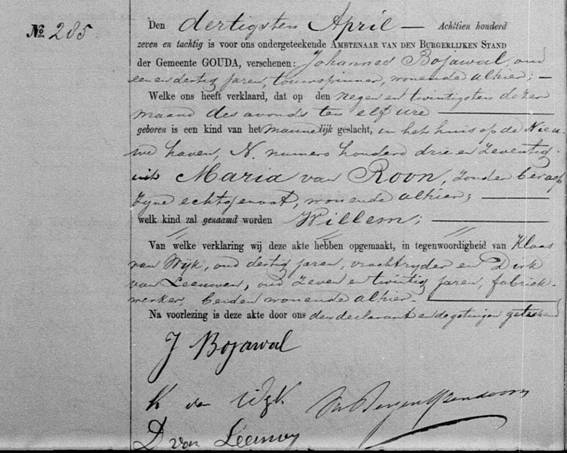 No. 285
Den dertigsten April — Achttien honderd
zeven en tachtig is voor ons ondergeteekende AMBTENAAR VAN DEN BURGERLIJKEN STAND
der Gemeente GOUDA, verschenen: Johannes Bojawal, oud
een en dertig jaren, touwspinner, wonende alhier; —
Welke ons heeft verklaard, dat op den negen en twintigsten dezer
maand des avonds ten elf ure
geboren is een kind van het mannelijk geslacht, in het huis op de Nieu-
we haven, N. numero honderd drie en zeventig
uit Maria van Roon, zonder beroep
zijne echtgenoot, wonende alhier;
welk kind zal genaamd worden Willem;
Van welke verklaring wij deze akte hebben opgemaakt, in tegenwoordigheid van Klaas
van Wijk, oud dertig jaren, vrachtrijder en Dirk
van Leeuwen, oud zeven en twintig jaren, fabriek-
werker, beiden wonende alhier.
Na voorlezing is deze akte door ons den declarant en de getuigen geteekend
J Bojawal
K van Wijk
D van Leeuwen